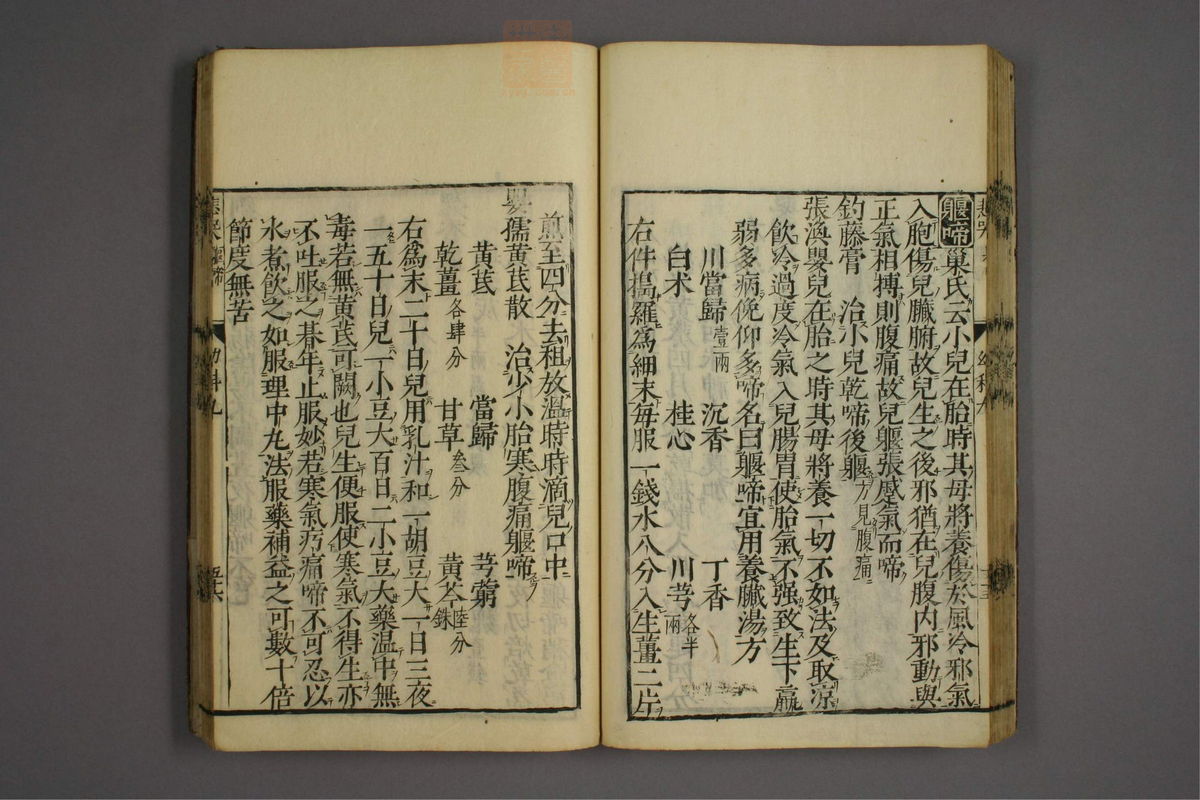 躽啼巢氏云小兒在胎時其母將養傷於風冷邪氣
入胞傷兒臟腑故兒生之後邪猶在兒腹內邪動與
正氣相搏則腹痛故兒躽張蹙氣而啼
釣藤膏　治小兒乾啼後躽方見腹痛
張渙嬰兒在胎之時其母將養一切不如法及取涼
飲冷過度冷氣入兒腸胃使胎氣不强致生下羸
弱多病俛仰多啼名曰躽啼宜用養臟湯方
川當歸壹兩　沉香　丁香
白术　桂心　川芎各半兩
右件擣羅爲細末每服一錢水八分入生薑二片
煎至四分去柤放溫時時滴兒口中
嬰孺黃芪散　治少小胎寒腹痛躽啼
黃芪　當歸　芎藭
乾薑各肆分　甘草叁分　黃芩陸分銖
右爲末二十日兒用乳汁和一胡豆大一日三夜
一五十日兒一小豆大百日二小豆大藥溫中無
毒若無黃芪可闕也兒生便服使寒氣不得生亦
不吐服之朞年止服妙若寒氣疞痛啼不可忍以
水煮飲之如服理中丸法服藥補益之可數十倍
節度無苦
幼科九
五六